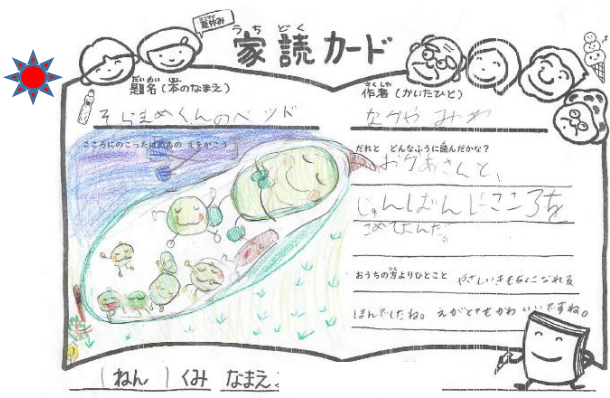 夏休み
家読カード
うちどく
題名(本のなまえ)
だいめい
そらまめくんのベッド
作者(かいたひと)
さくしゃ
なかや みわ
こころにのこったばめんの えをかこう
だれと どんなふうに読んだかな?
おかあさんと、
じゅんばんにこころを
こめてよんだ。
おうちの方よりひとこと
やさしいきもちになれる
ほんでしたね。えがとてもかわいいですね。
1ねん 1くみ なまえ